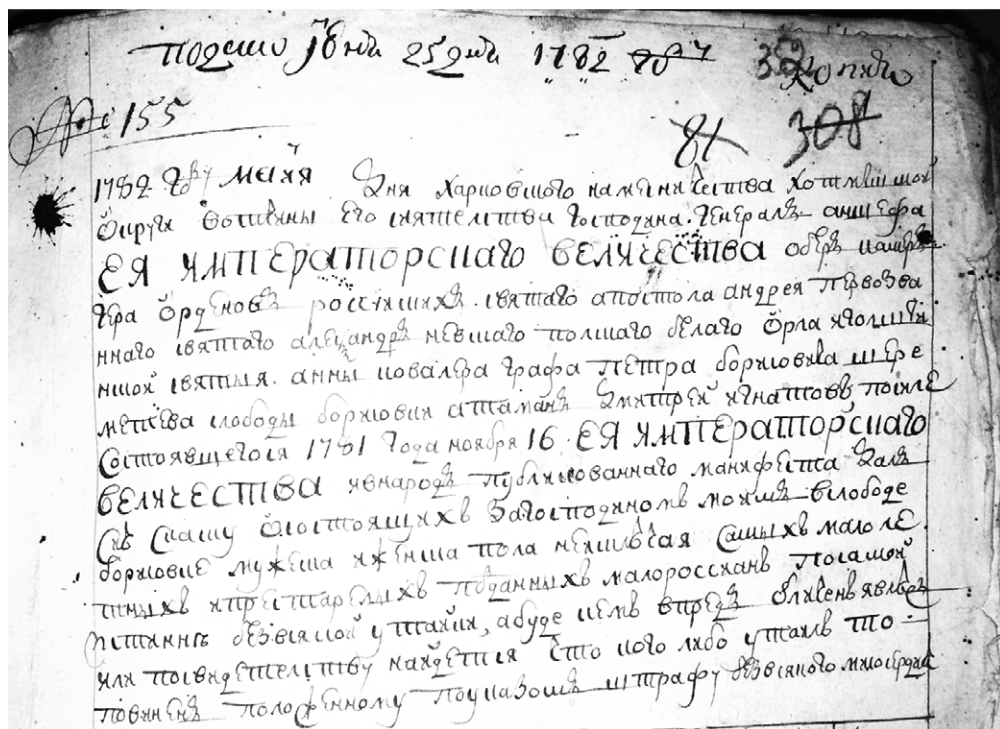 подано Июня 25 дня 1782 году
№ 155
81 308
1782 году мая дня харковского наместничества хотмышской
округи вотчины его сиятелства господина генералъ аншефа
ЕЯ ИМПЕРАТОРСКАГО ВЕЛИЧЕСТВА оберъ камеръ
гера орденовъ россискихъ святаго апостола андрея первозва
ннаго святаго александръ невскаго полскаго белаго орла иголшти
нской святыя анны ковалера графа петра борисовича шере
метева слободы борисовки атаманъ дмитрей игнатовъ после
состоявшегося 1781 года ноября 16 ЕЯ ИМПЕРАТОРСКАГО
ВЕЛИЧЕСТВА ивнародъ публикованнаго манифеста далъ
сию скаску осостоящихъ загосподиномъ моимъ вслободе
борисовке мужеска иженска пола неисключая самыхъ малоле
тныхъ ипрестарелыхъ подданныхъ малороссианъ посамой
истинне безвсякой утайки, абуде кемъ впредь обличенъ явлюсь
или посвидетелству найдется что кого либо утаилъ то
повиненъ положенному поуказомъ штрафу безвсякого милосердия